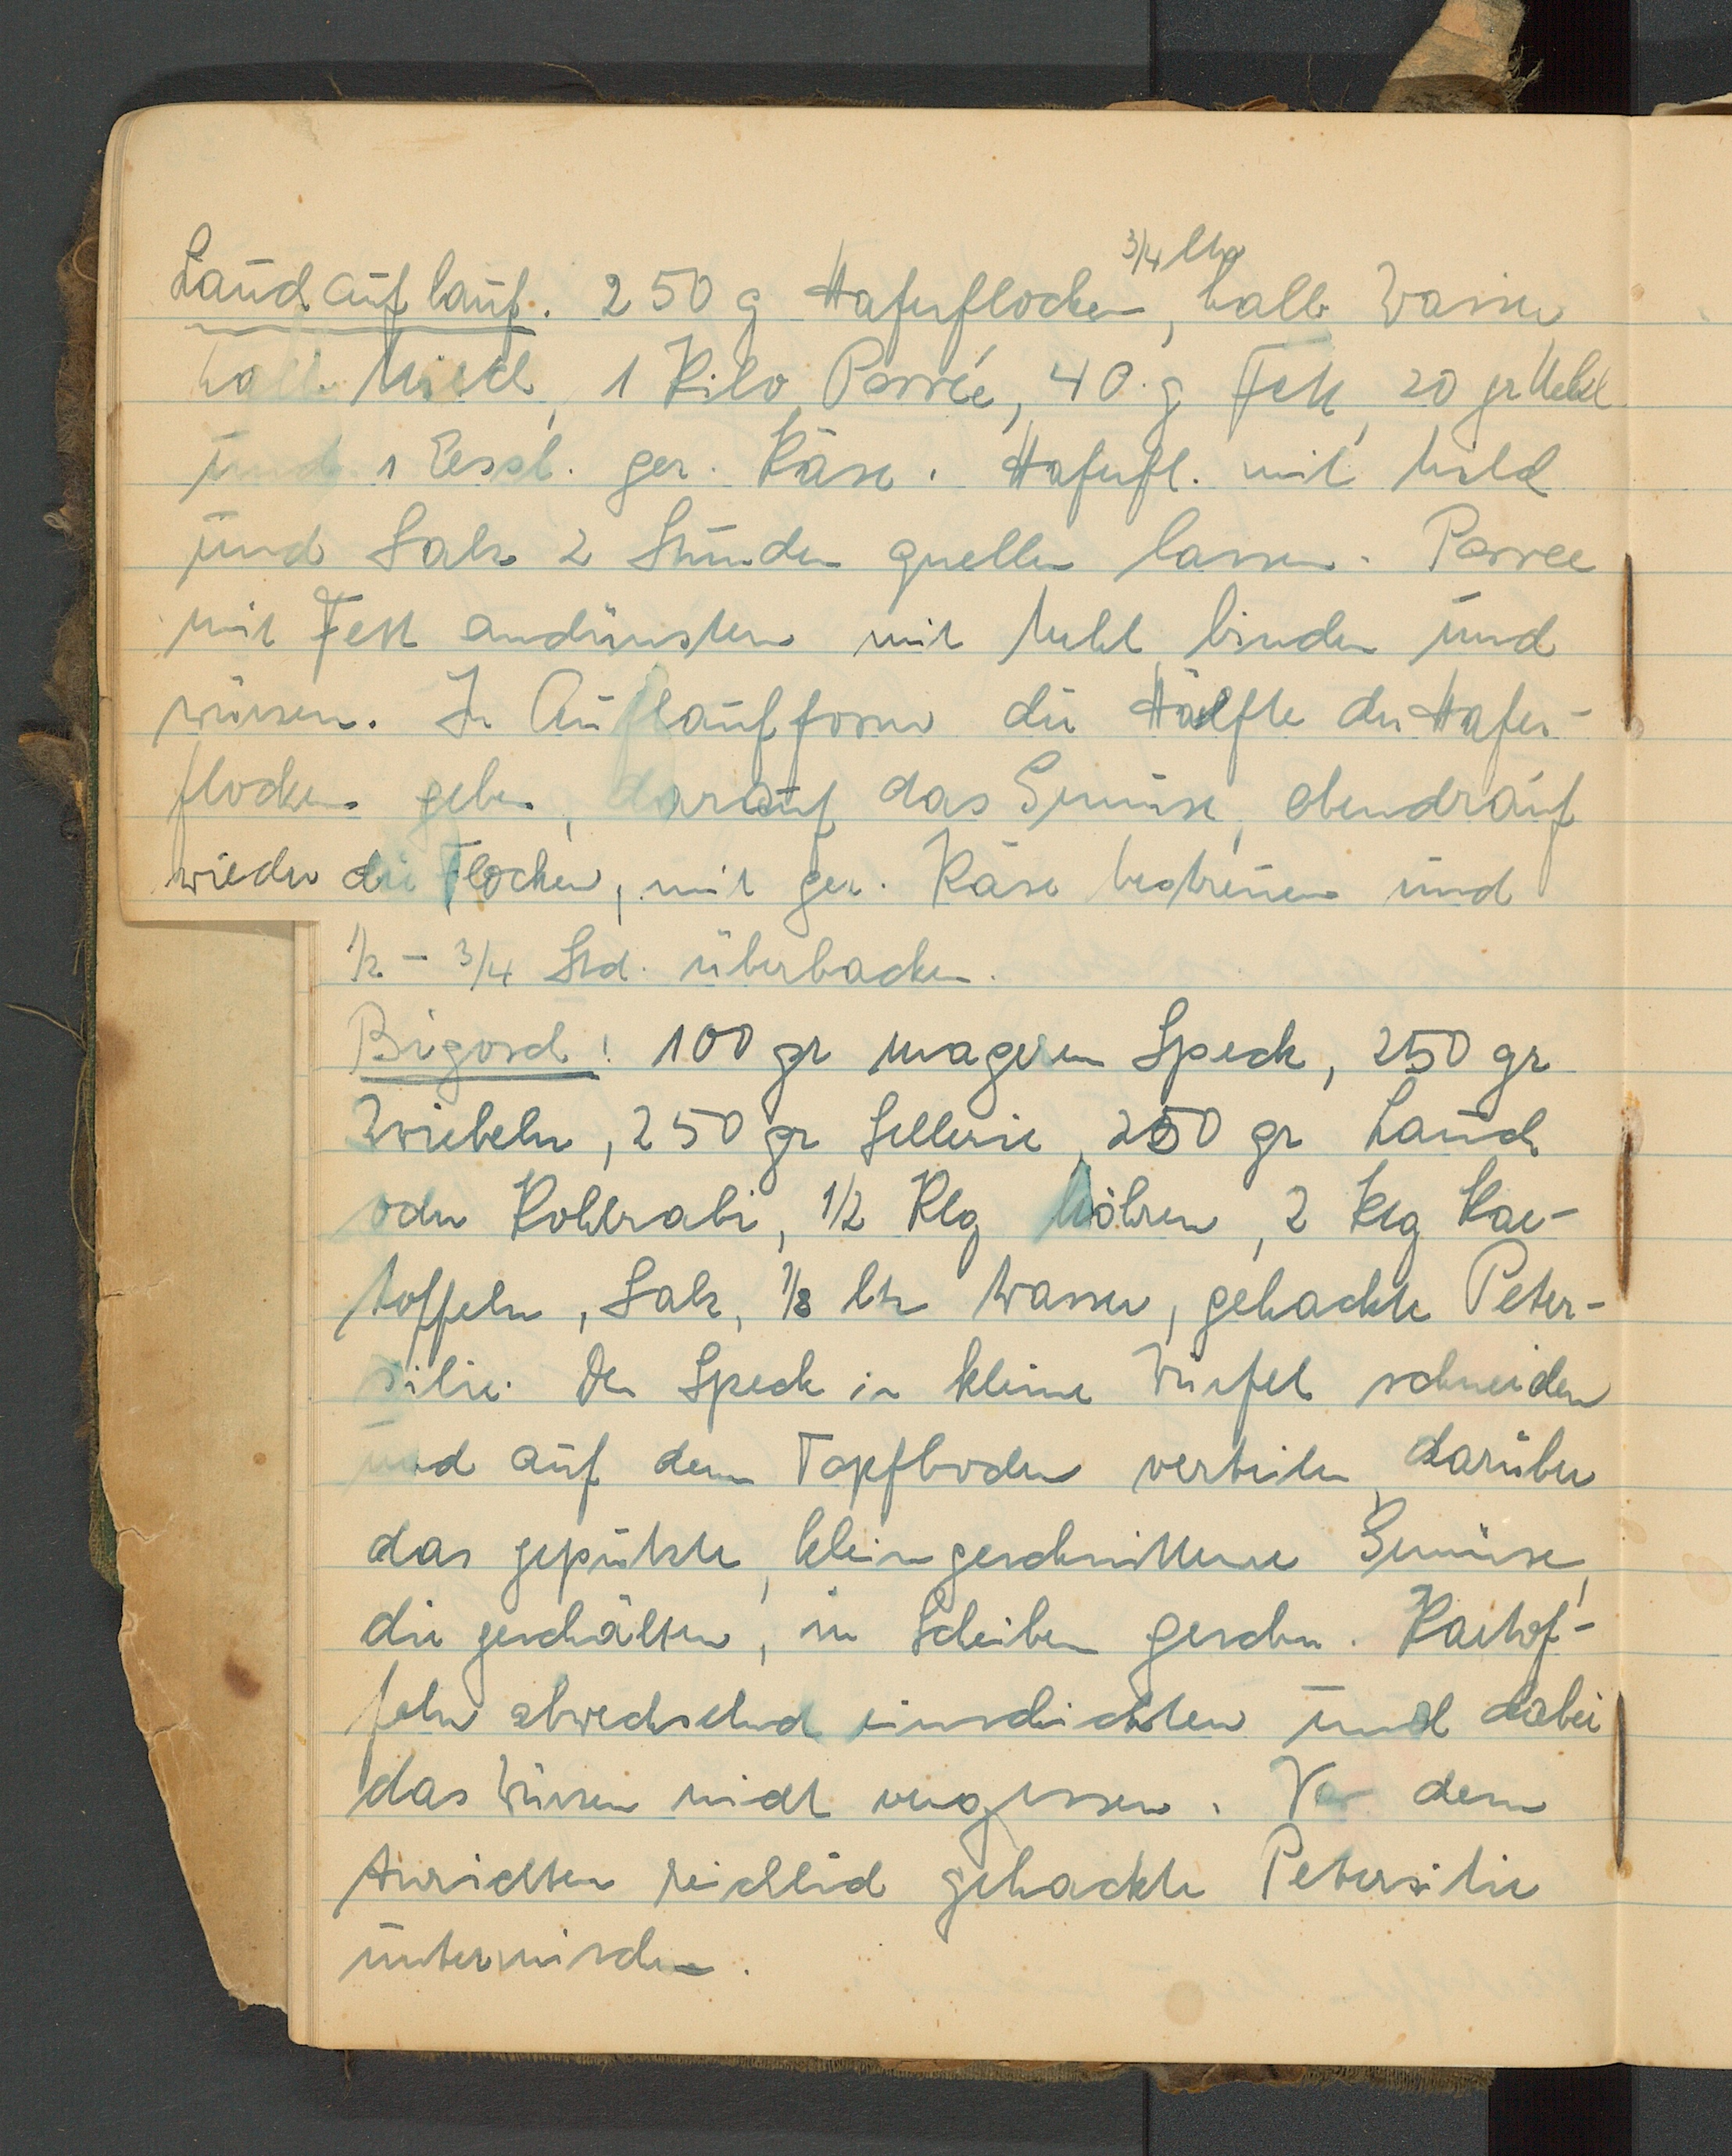 Lauchauflauf. 250 g Haferflocken, 3/4 ltr halb Wasser
halb Milch, 1 Kilo Porrée, 40 g Fett, 20 gr Mehl
und 1 Essl. ger. Käse. Haferfl. mit Milch
und Salz 2 Stunden quellen lassen. Porree
mit Fett andünsten mit Mehl binden und
würzen. In Auflaufform die Hälfte der Hafer-
flocken geben, darauf das Gemüse, obendrauf
wieder die Flocken, mit ger. Käse bestreuen und
1/2 - 3/4 Std. überbacken.
Bigosch! 100 gr mageren Speck, 250 gr
Zwiebeln, 250 gr Sellerie, 250 gr Lauch
oder Kohlrabi, 1/2 Klg Möhren, 2 Klg Kar-
toffeln, Salz, 1/8 ltr Wasser, gehackte Peter-
silie. Den Speck in kleine Würfel schneiden
und auf dem Topfboden verteilen, darüber
das geputzte, kleingeschnittene Gemüse,
die geschälten, in Scheiben geschn. Kartof-
feln abwechselnd einschichten und dabei
das Würzen nicht vergessen. Vor dem
Anrichten reichlich gehackte Petersilie
untermischen.